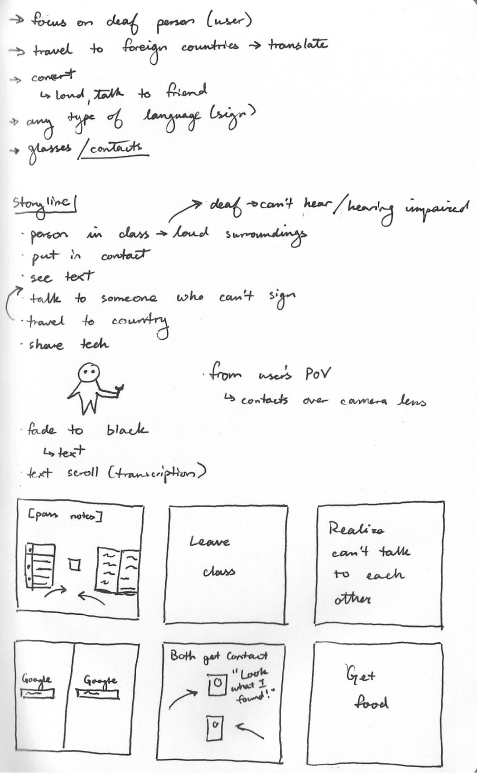 → focus on deaf person (user)
→ travel to foreign countries → translate
→ concert
↳ loud, talk to friend
→ any type of language (sign)
→ glasses / contacts
Storyline
→ deaf → can't hear / hearing impaired
· person in class → loud surroundings
· put in contact
· see text
· talk to someone who can't sign
· travel to country
· share tech
· from user's POV
↳ contacts over camera lens
· fade to black
↳ text
· text scroll (transcription)
[pass notes]
Leave
class
Realize
can't talk
to each
other
Google
Google
Both get contact
"Look
what I
found!"
Get
food